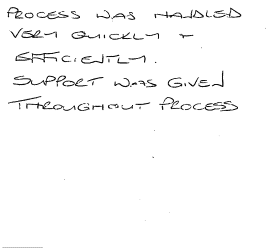 PROCESS WAS HANDLED
VERY QUICKLY +
EFFICIENTLY.
SUPPORT WAS GIVEN
THROUGHOUT PROCESS